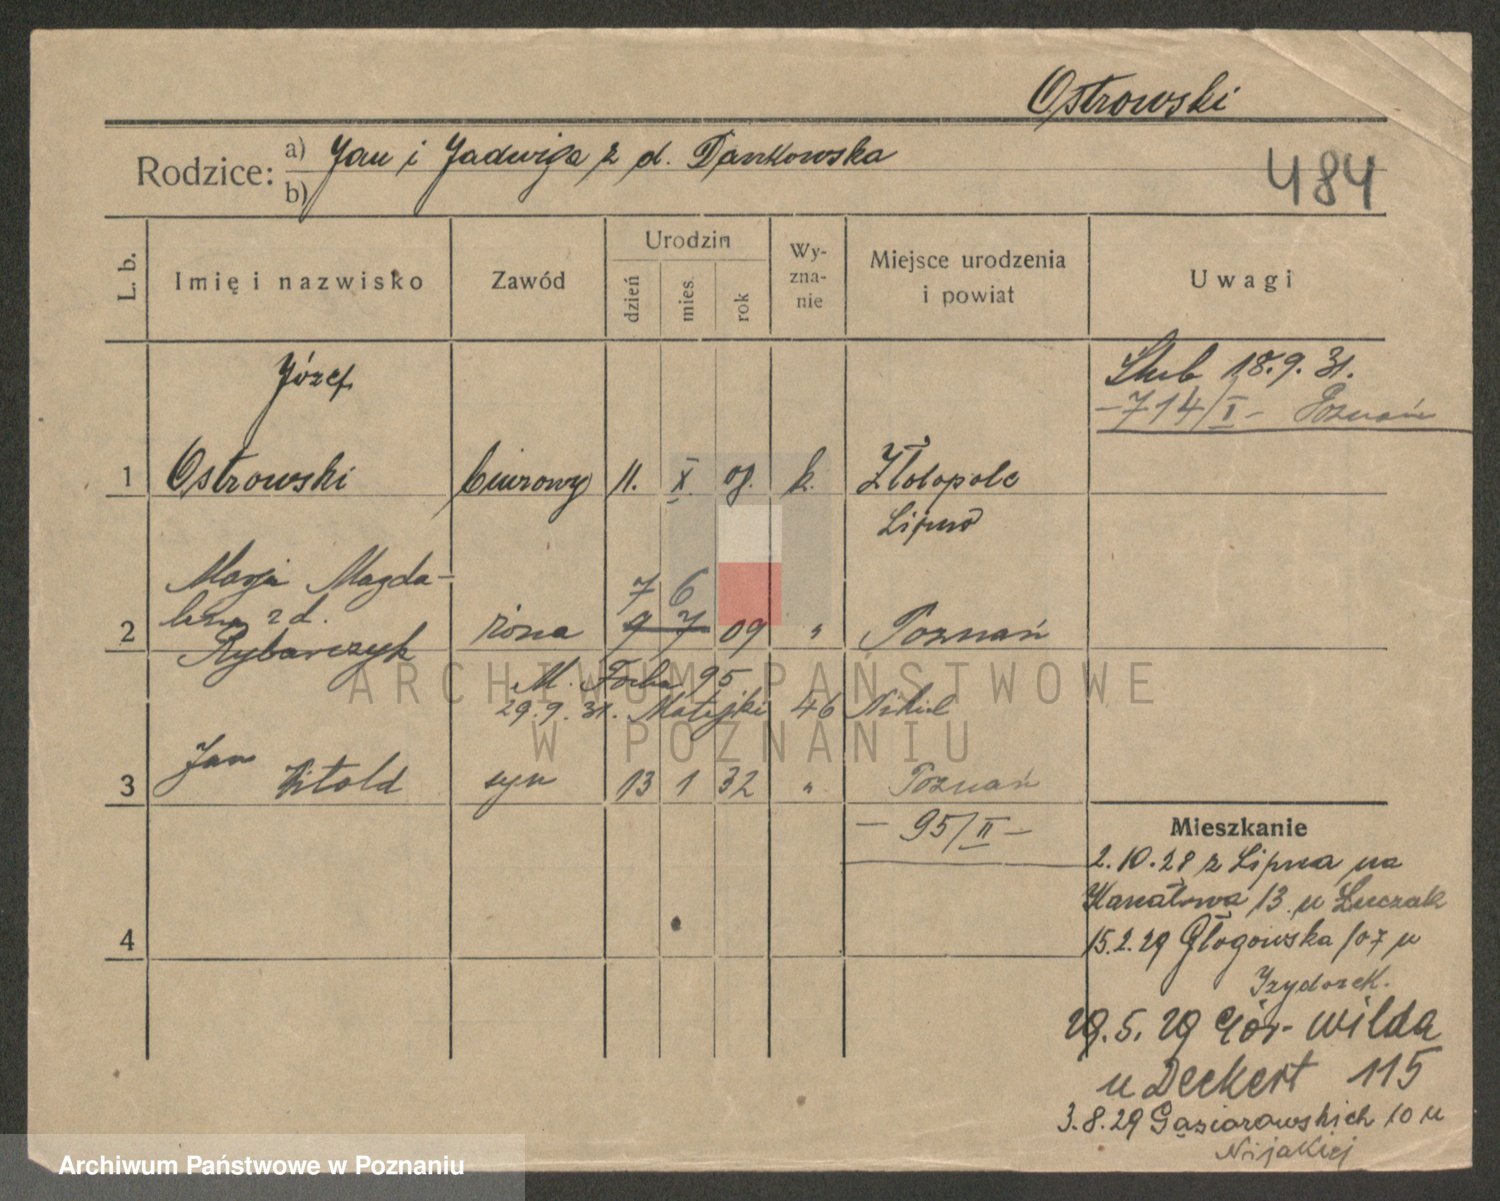 Ostrowski
Rodzice: a) Jan i Jadwiga z d. Dankowska
b)
484
L. b.
Imię i nazwisko
Zawód
Urodzin
dzień
mies.
rok
Wy-
zna-
nie
Miejsce urodzenia
i powiat
Uwagi
Ślub 18.9.31.
-714/I- Poznań
Józef
1 Ostrowski biurowy 11. X 08. k. Złotopole
Lipno
Marja Magda-
lena z d.
7 6
2 Rybarczyk żona 9 7 09 " Poznań
M. Focha 95
29.9.31. Matejki 46
3 Jan Witold syn 13 1 32 " Poznań
- 95/II -
4
Mieszkanie
2.10.28 z Lipna na
Kanałowa 13 u Łuczak
15.2.29 Głogowska 107 u
Izydorek.
29.5.29 Gór- Wilda
u Deckert 115
3.8.29 Gąsiorowskich 10 u
Nijakiej
ARCHIWUM PAŃSTWOWE
W POZNANIU
Archiwum Państwowe w Poznaniu